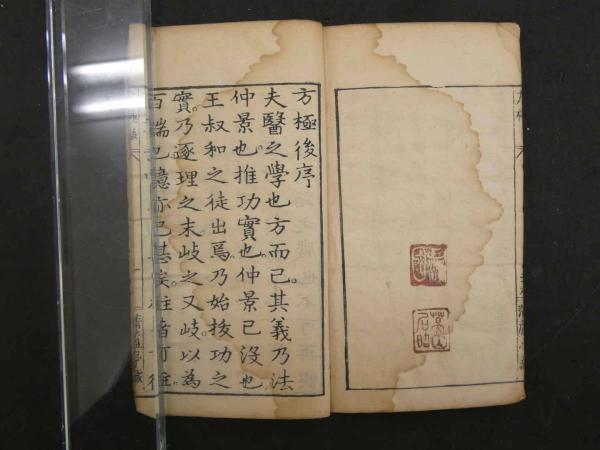 方極後序
夫醫之學也方而已。其義乃法
仲景也。推功實也。仲景已没也
王叔和之徒出焉。乃始拔功之
實。乃逐理之末岐之又岐以為
百端也噫亦已甚矣。往者可